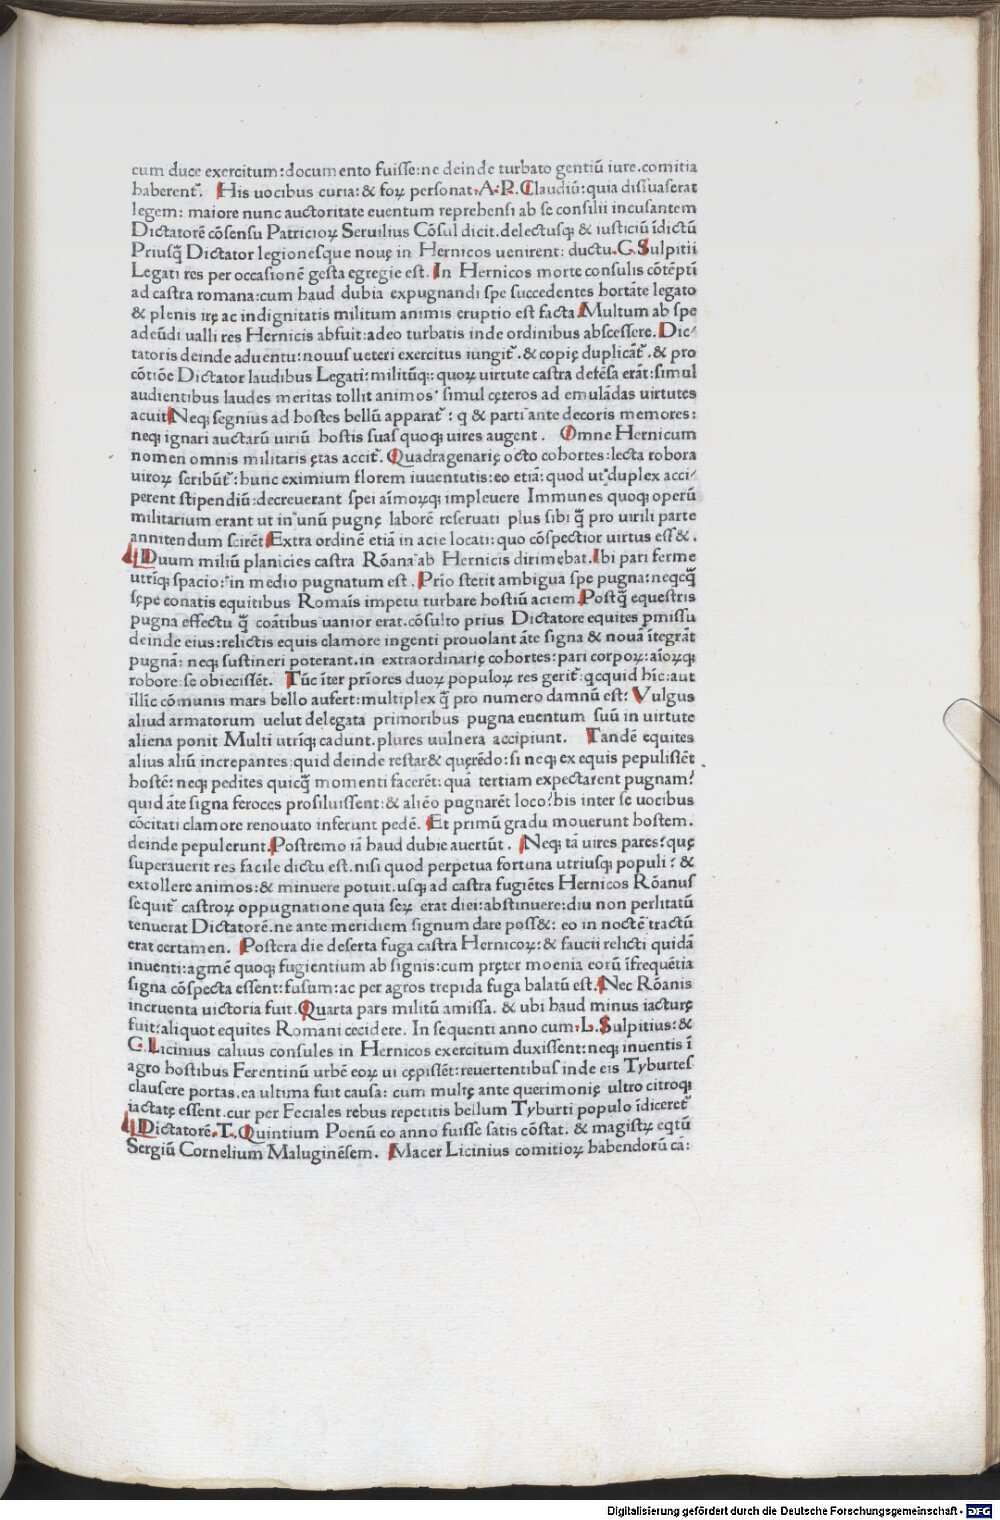 cum duce exercitum:documento fuisse:ne deinde turbato gentiū iure.comitia
haberent᷑. His uocibus curia:& foꝝ personat.A.P.Claudiū:quia dissuaserat
legem: maiore nunc auctoritate euentum reprehensi ab se consilii incusantem
Dictatorē cōsensu Patricioꝝ Seruilius Cōsul dicit.delectusqꝫ & iusticiū īdictū
Priusq̄ Dictator legionesque nouę in Hernicos uenirent: ductu.C.Sulpitii
Legati res per occasionē gesta egregie est. In Hernicos morte consulis cōtēpti
ad castra romana:cum haud dubia expugnandi spe succedentes hortāte legato
& plenis irę ac indignitatis militum animis eruptio est facta.Multum ab spe
adeūdi ualli res Hernicis abfuit:adeo turbatis inde ordinibus abscessere.Dic⸗
tatoris deinde aduentu:nouus ueteri exercitus iungit᷑.& copię duplicāt᷑.& pro
cōtiōe Dictator laudibus Legati:militūqꝫ:quoꝝ uirtute castra defēsa erāt:simul
audientibus laudes meritas tollit animos: simul cęteros ad emulādas uirtutes
acuit.Neqꝫ segnius ad hostes bellū apparat᷑: q & parti ante decoris memores:
neqꝫ ignari auctarū uiriū hostis suas quoqꝫ uires augent. Omne Hernicum
nomen omnis militaris ętas accit᷑. Quadragenarię octo cohortes:lecta robora
uiroꝝ scribūt᷑:hunc eximium florem iuuentutis:eo etiā:quod ut duplex acci⸗
perent stipendiū:decreuerant spei aīmoꝝqꝫ impleuere Immunes quoqꝫ operū
militarium erant ut in unū pugnę laborē reseruati plus sibi q̄ pro uirili parte
annitendum scirēt.Extra ordinē etiā in acie locati:quo cōspectior uirtus ess&.
Duum miliū planicies castra Rōana ab Hernicis dirimebat.Ibi pari ferme
utrīqꝫ spacio:in medio pugnatum est. Prīo stetit ambigua spe pugna:neqcq̄
sępe conatis equitibus Romaīs impetu turbare hostiū aciem.Postq̄ equestris
pugna effectu q̄ coātibus uanior erat.cōsulto prius Dictatore equites ꝑmissu
deinde eius:relictis equis clamore ingenti prouolant āte signa & nouā ītegrāt
pugnā: neqꝫ sustineri poterant.in extraordinarię cohortes:pari corpoꝝ:aīoꝝqꝫ
robore:se obiecissēt. Tūc īter prīores duoꝝ populoꝝ res gerit᷑:qcquid hīc:aut
illīc cōmunis mars bello aufert:multiplex q̄ pro numero damnū est: Vulgus
aliud armatorum uelut delegata primoribus pugna euentum suū in uirtute
aliena ponit Multi utrīqꝫ cadunt.plures uulnera accipiunt. Tandē equites
alius aliū increpantes:quid deinde restar& quęrēdo:si neqꝫ ex equis pepulissēt
hostē: neqꝫ pedites quicq̄ momenti facerēt:quā tertiam expectarent pugnam?
quid āte signa feroces prosiluissent:& aliēo pugnarēt loco?his inter se uocibus
cōcitati clamore renouato inferunt pedē. Et primū gradu mouerunt hostem.
deinde pepulerunt.Postremo iā haud dubie auertūt. Neqꝫ tā uires pares:quę
superauerit res facile dictu est.nisi quod perpetua fortuna utriusqꝫ populi: &
extollere animos:& minuere potuit.usqꝫ ad castra fugiētes Hernicos Rōanus
sequit᷑ castroꝝ oppugnatione quia seꝝ erat diei:abstinuere:diu non perlitatū
tenuerat Dictatorē.ne ante meridiem signum dare poss&: eo in noctē tractū
erat certamen. Postera die deserta fuga castra Hernicoꝝ:& faucii relicti quidā
inuenti:agmē quoqꝫ fugientium ab signis:cum pręter moenia eorū īfrequētia
signa cōspecta essent:fusum:ac per agros trepida fuga balatū est.Nec Rōanis
incruenta uictoria fuit.Quarta pars militū amissa. & ubi haud minus iacturę
fuit:aliquot equites Romani cecidere. In sequenti anno cum.L.Sulpitius:&
C.Licinius caluus consules in Hernicos exercitum duxissent:neqꝫ inuentis ī
agro hostibus Ferentinū urbē eoꝝ ui cępissēt:reuertentibus inde eis Tyburtes
clausere portas.ea ultima fuit causa: cum multę ante querimonię ultro citroqꝫ
iactatę essent.cur per Feciales rebus repetitis bellum Tyburti populo īdiceret᷑
Dictatorē.T.Quintium Poenū eo anno fuisse satis cōstat. & magistꝝ eqtū
Sergiū Cornelium Maluginēsem. Macer Licinius comitioꝝ habendorū cā:
Digitalisierung gefördert durch die Deutsche Forschungsgemeinschaft - DFG